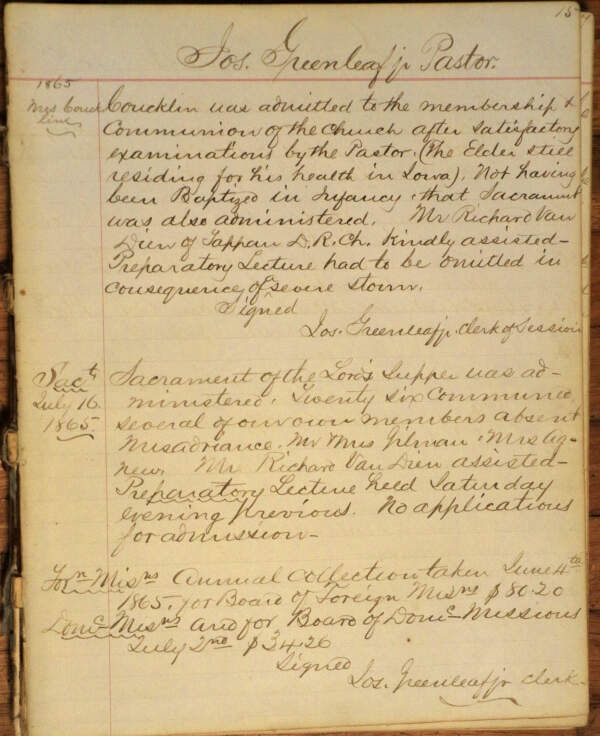 15
Jos. Greenleaf jr Pastor.
1865
Mrs Couck
lin
Coucklin was admitted to the membership &
Communion of the Church after satisfactory
examinations by the Pastor. (The Elder still
residing for his health in Iowa). Not having
been Baptized in Infancy, that Sacrament
was also administered. Mr Richard Van
Dien of Tappan D. R. Ch. Kindly assisted—
Preparatory Lecture had to be omitted in
consequency of severe storm.
Signed
Jos. Greenleaf jr. clerk of Session
Sact
July 16.
1865.
Sacrament of the Lord's Supper was ad-
ministered. Twenty six Communed,
several of our own members absent
Miss Mr Mrs Mrs Ag-
new. Mr Richard Van Dien assisted—
Preparatory Lecture held Saturday
evening previous. No applications
for admission—
Forn Misns Annual Collection taken June 4th
1865, for Board of Foreign Misns $80.20
Domc Misns and for Board of Domc Missions
July 2nd $34.26
Signed
Jos. Greenleaf jr clerk.